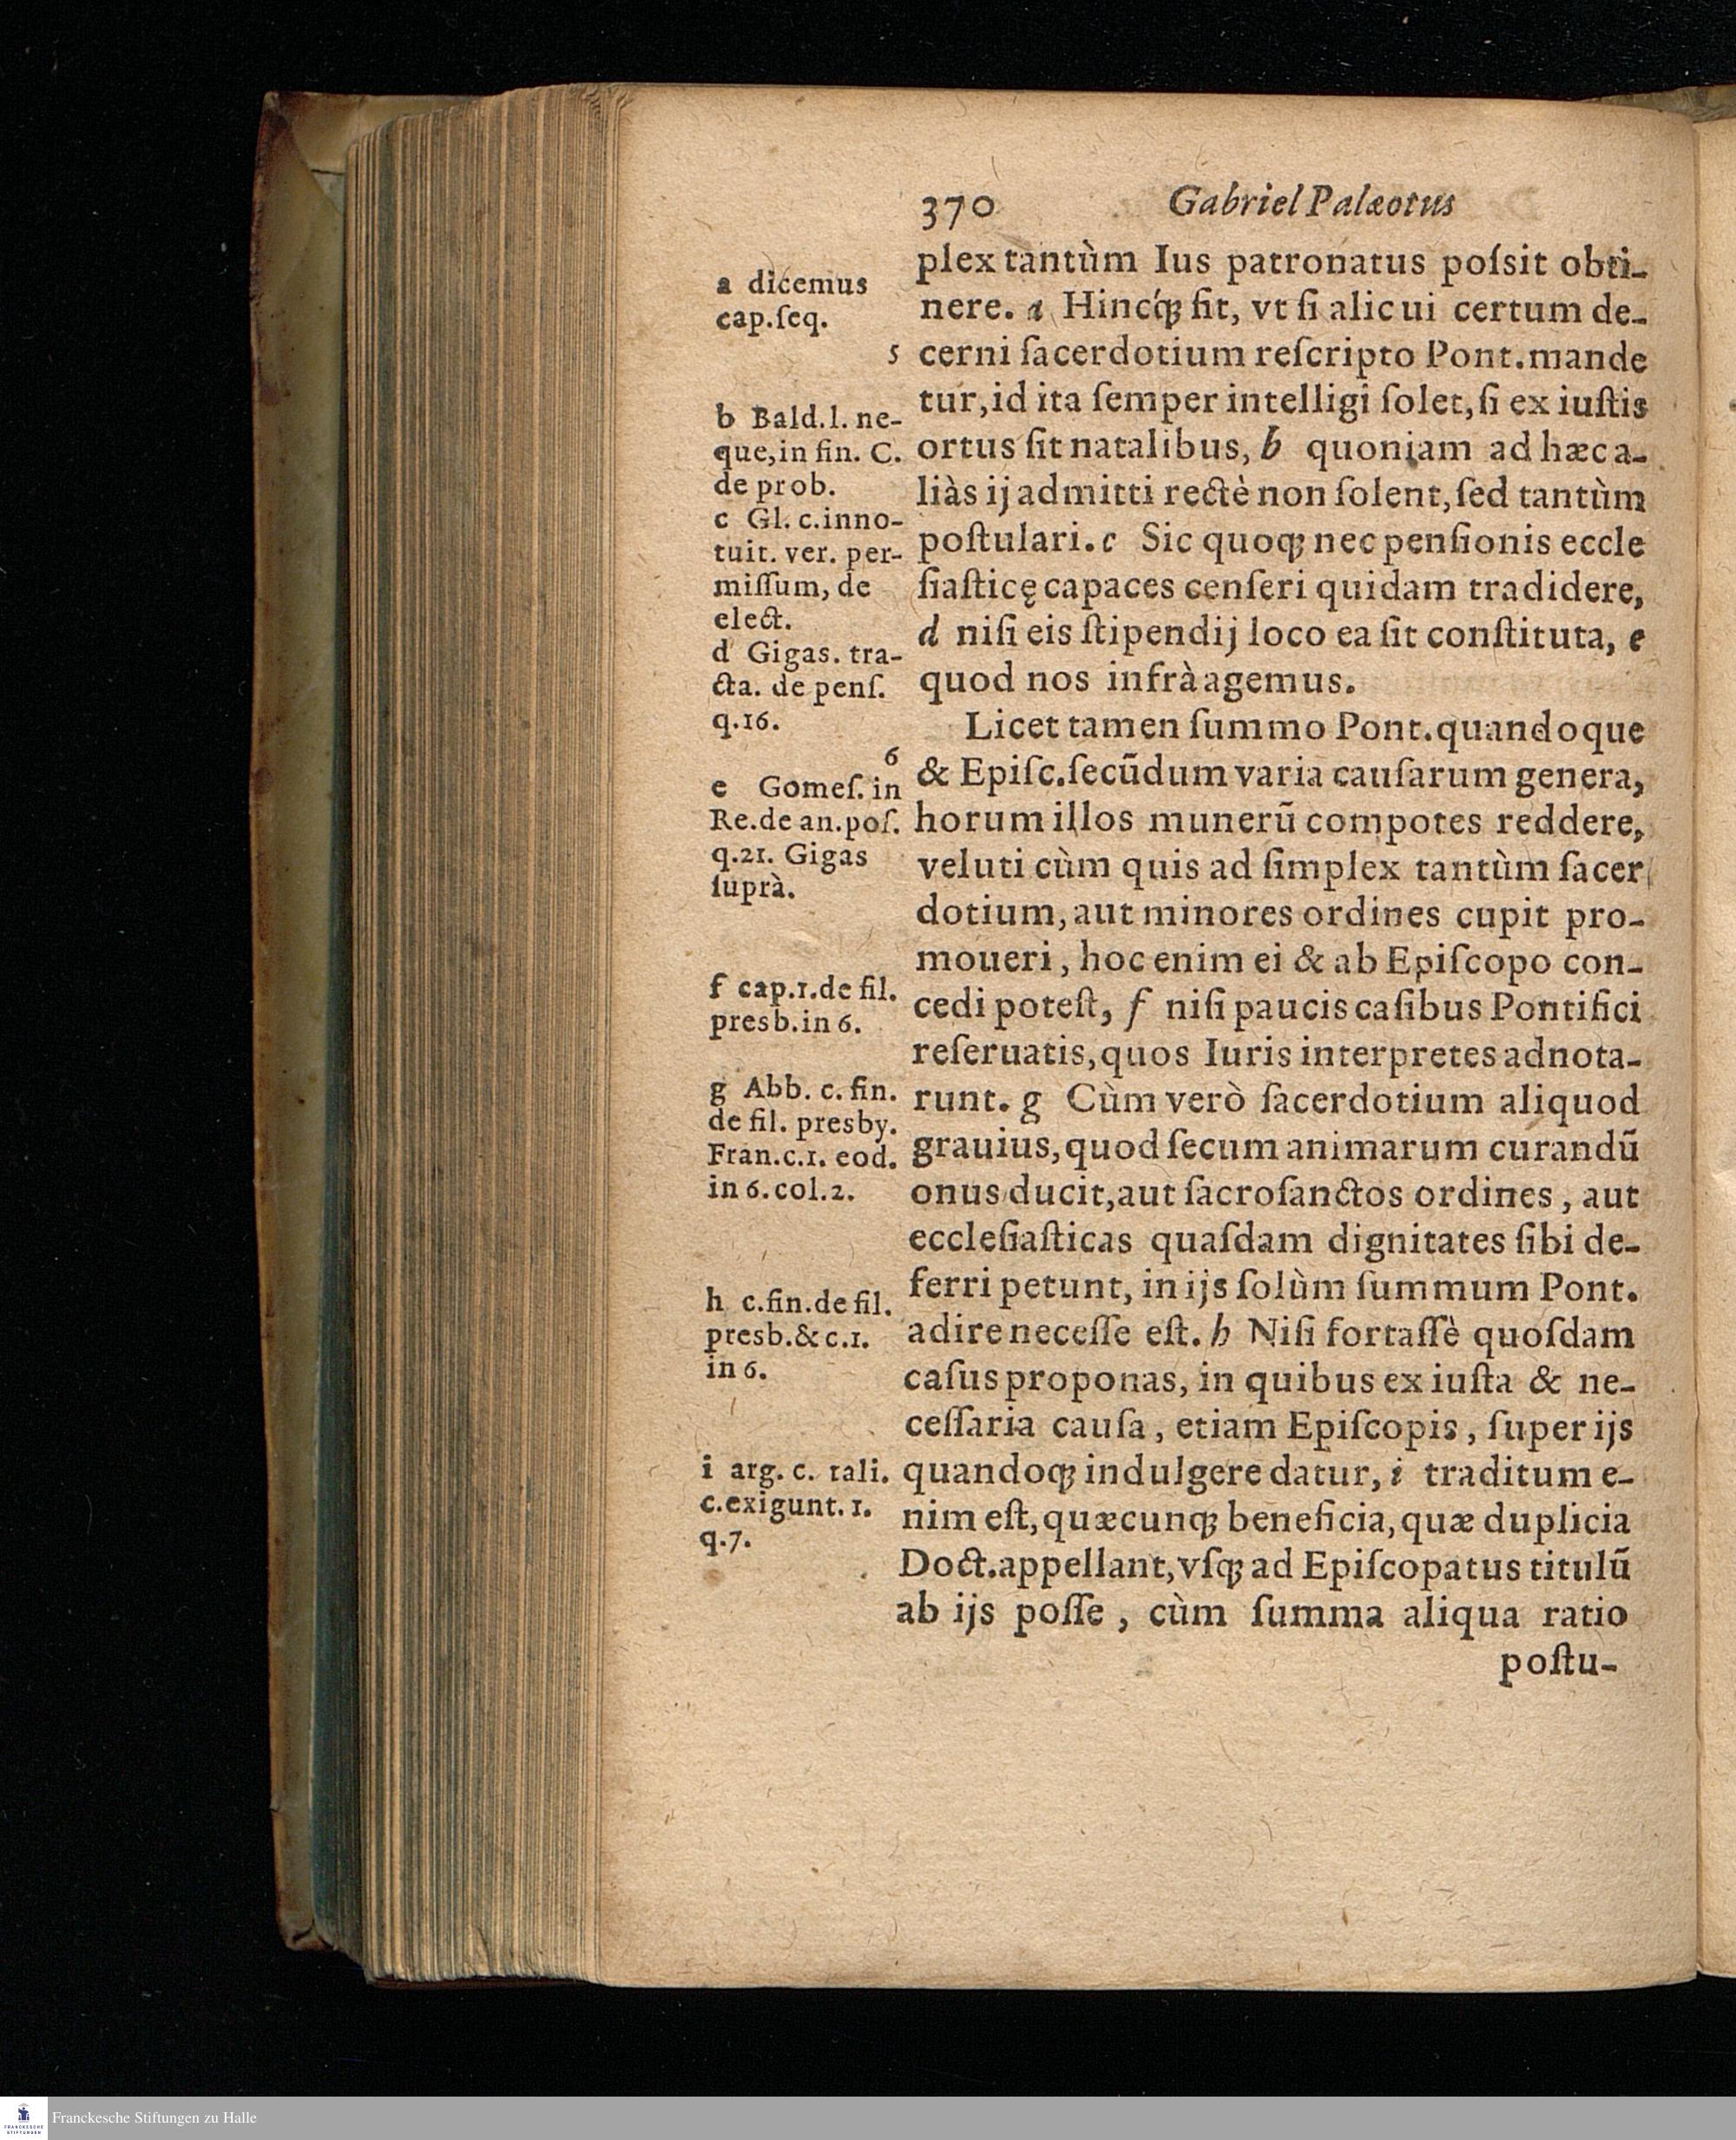 370 Gabriel Palæotus
plex tantùm Ius patronatus poſsit obti-
nere. a Hincq́ꝫ fit, vt ſi alicui certum de-
5 cerni ſacerdotium reſcripto Pont.mande
tur,id ita ſemper intelligi ſolet,ſi ex iuſtis
ortus ſit natalibus, b quoniam ad hæc a-
liàs ij admitti rectè non ſolent,ſed tantùm
poſtulari.c Sic quoqꝫ nec penſionis eccle
ſiaſticę capaces cenſeri quidam tradidere,
d niſi eis ſtipendij loco ea ſit conſtituta, e
quod nos infrà agemus.
Licet tamen ſummo Pont.quandoque
6 & Epiſc.ſecūdum varia cauſarum genera,
horum illos munerū compotes reddere,
veluti cùm quis ad ſimplex tantùm ſacer
dotium,aut minores ordines cupit pro-
moueri, hoc enim ei & ab Epiſcopo con-
cedi poteſt, f niſi paucis caſibus Pontifici
reſeruatis,quos Iuris interpretes adnota-
runt. g Cùm verò ſacerdotium aliquod
grauius,quod ſecum animarum curandū
onus ducit,aut ſacroſanctos ordines, aut
eccleſiaſticas quaſdam dignitates ſibi de-
ferri petunt, in ijs ſolùm ſummum Pont.
adire neceſſe eſt. h Niſi fortaſſè quoſdam
caſus proponas, in quibus ex iuſta & ne-
ceſſaria cauſa, etiam Epiſcopis, ſuper ijs
quandoqꝫ indulgere datur, i traditum e-
nim eſt,quæcunqꝫ beneficia,quæ duplicia
Doct.appellant,vſqꝫ ad Epiſcopatus titulū
ab ijs poſſe, cùm ſumma aliqua ratio
poſtu-
a dicemus
cap.ſeq.
b Bald.l. ne-
que,in fin. C.
de prob.
c Gl. c.inno-
tuit. ver. per-
miſſum, de
elect.
d Gigas. tra-
cta. de penſ.
q.16.
e Gomeſ. in
Re.de an.poſ.
q.21. Gigas
ſuprà.
f cap.1.de fil.
presb.in 6.
g Abb. c. fin.
de fil. presby.
Fran.c.1. eod.
in 6.col.2.
h c.fin.de fil.
presb.& c.1.
in 6.
i arg. c. tali.
c.exigunt. 1.
q.7.
FRANCKESCHE
STIFTUNGEN
Franckesche Stiftungen zu Halle